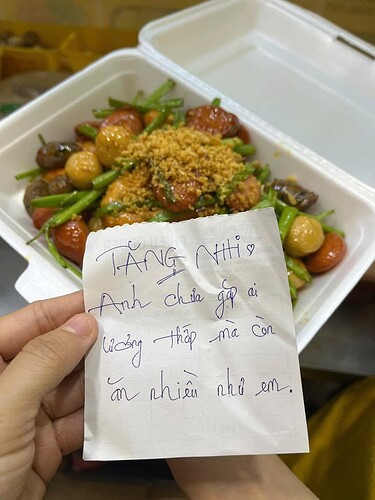 TẶNG NHI ♡
Anh chưa gặp ai
lương thấp mà còn
ăn nhiều như em.